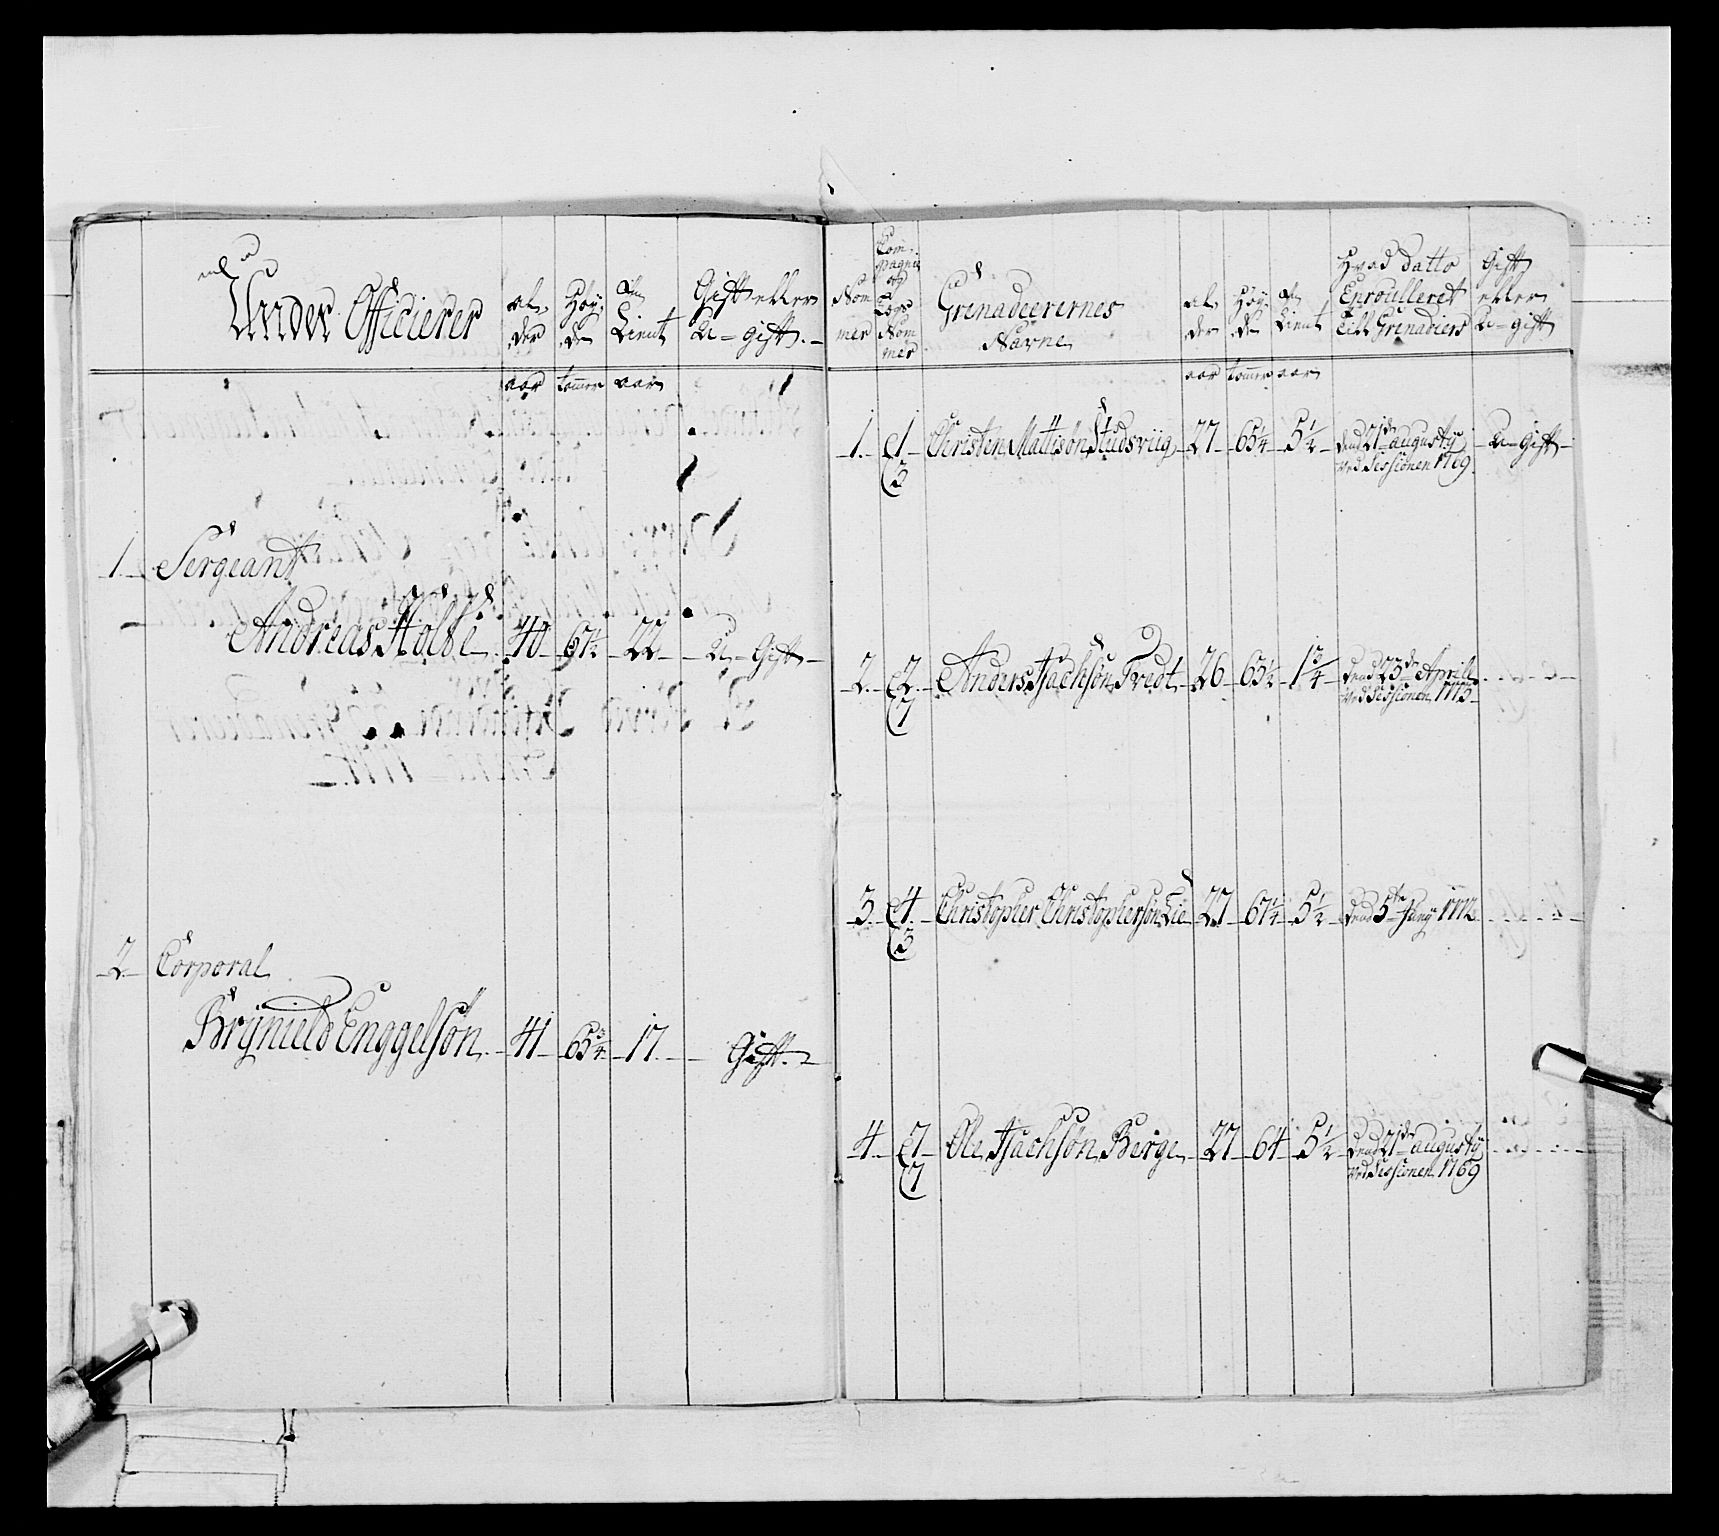 Under Officierer
Al-
der
Höy-
de
Tient
Gift eller
U-gift
aar tommer aar
1 Sergeant
Andreas Holst 40 67 22 U-Gift
2 Corporal
Brynield Enggelsøn 41 65 3/4 17 Gift
Nom
mer
Com-
pagnie
og
Lægs
Nom
mer
Grenadeerernes
Navne
Al-
der
Höy-
de
Tient
Hvad datto
Enroulleret
till Grenadiers
Gift
eller
U-gift
aar tommer aar
1 1 Christen Mattisøn Studsviig 27 65 1/4 5 1/2 dend 21de augusty U-Gift
3 ved Sessionen 1769
2 2 Anders Isachsøn Tvedt 26 65 1/2 1 3/4 dend 23de Aprili
7 ved Sessionen 1773
3 4 Christopher Christophersøn Lie 27 67 1/4 5 1/2 dend 5te Juny 1772
3
4 7 Ole Isachsøn Berge 27 64 5 1/2 dend 21de augusty
7 ved Sessionen 1769